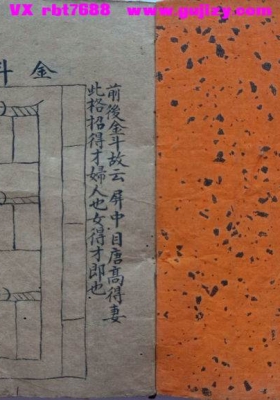 VX rbt7688 www.gujizy.com
金斗
前後金斗故云屏中目唐高得妻
此格招得才婦人也女得才郎也